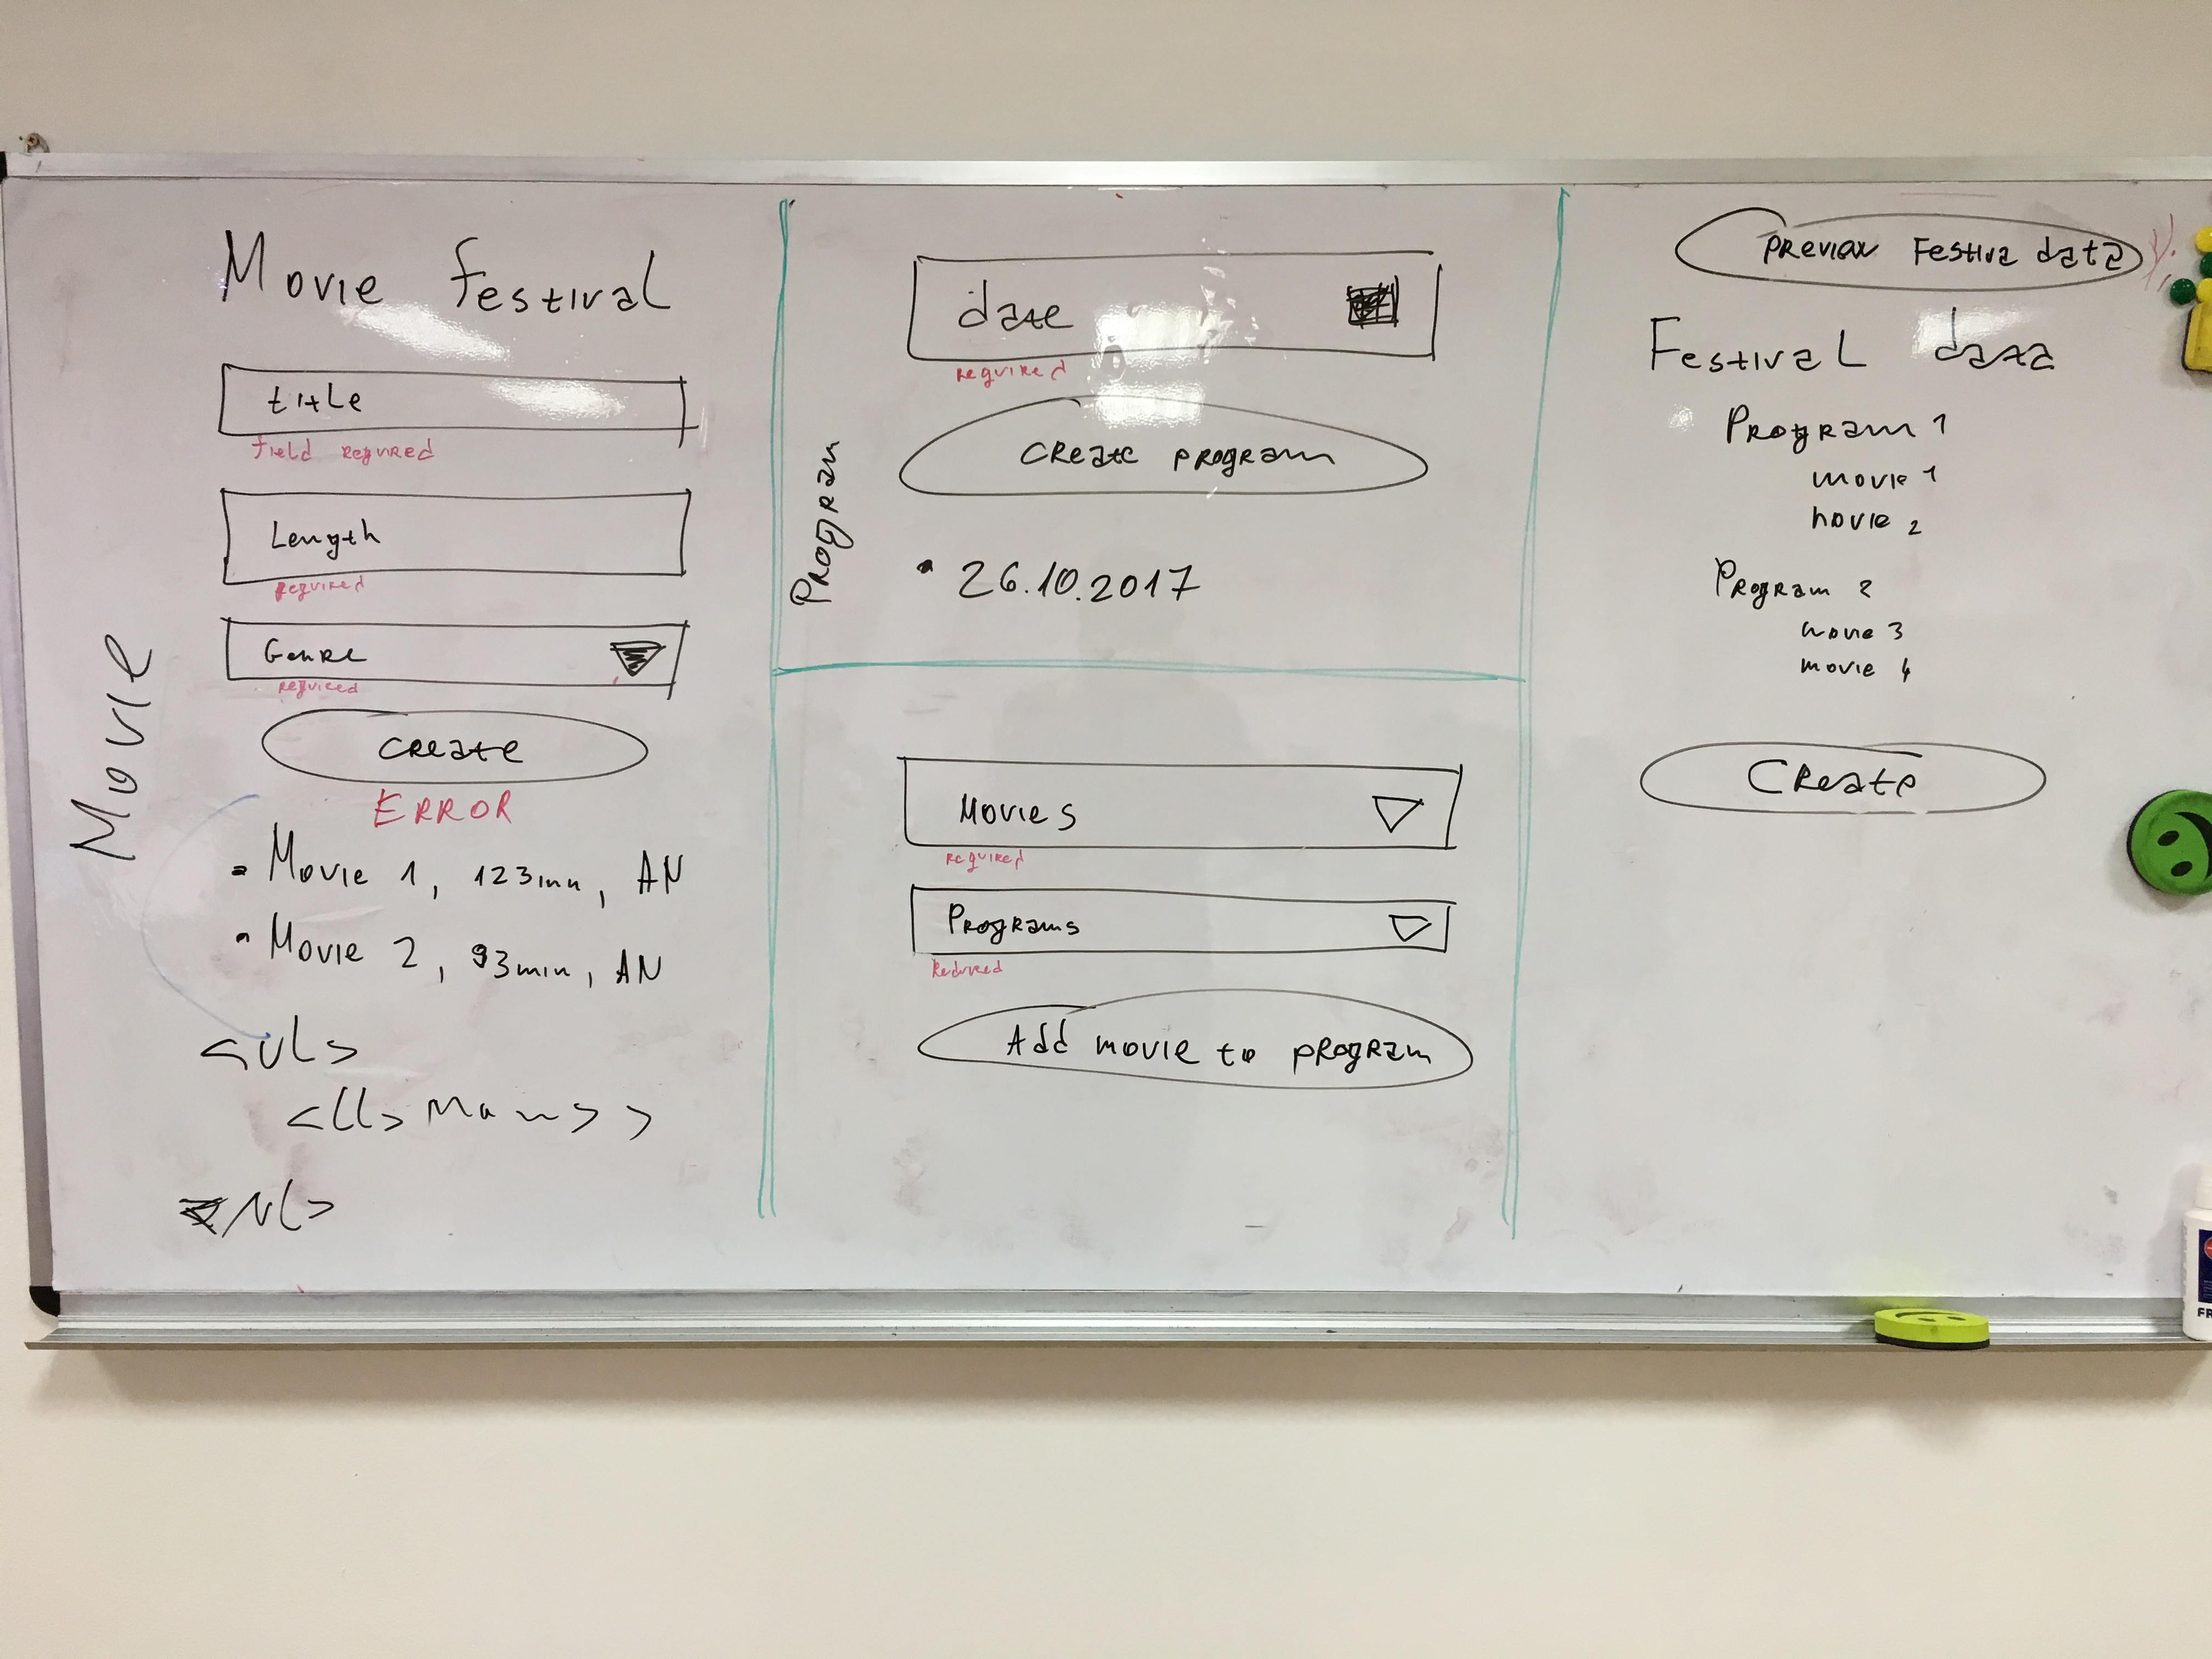 Movie festival
title
field required
Length
required
Genre
required
create
ERROR
Movie
• Movie 1, 123min, AN
• Movie 2, 93min, AN
<ul>
</ul>
date
required
create program
Program
• 26.10.2017
Movies
required
Programs
required
Add movie to program
Preview Festiva data
Festival data
Program 1
movie 1
movie 2
Program 2
movie 3
movie 4
Create
FR